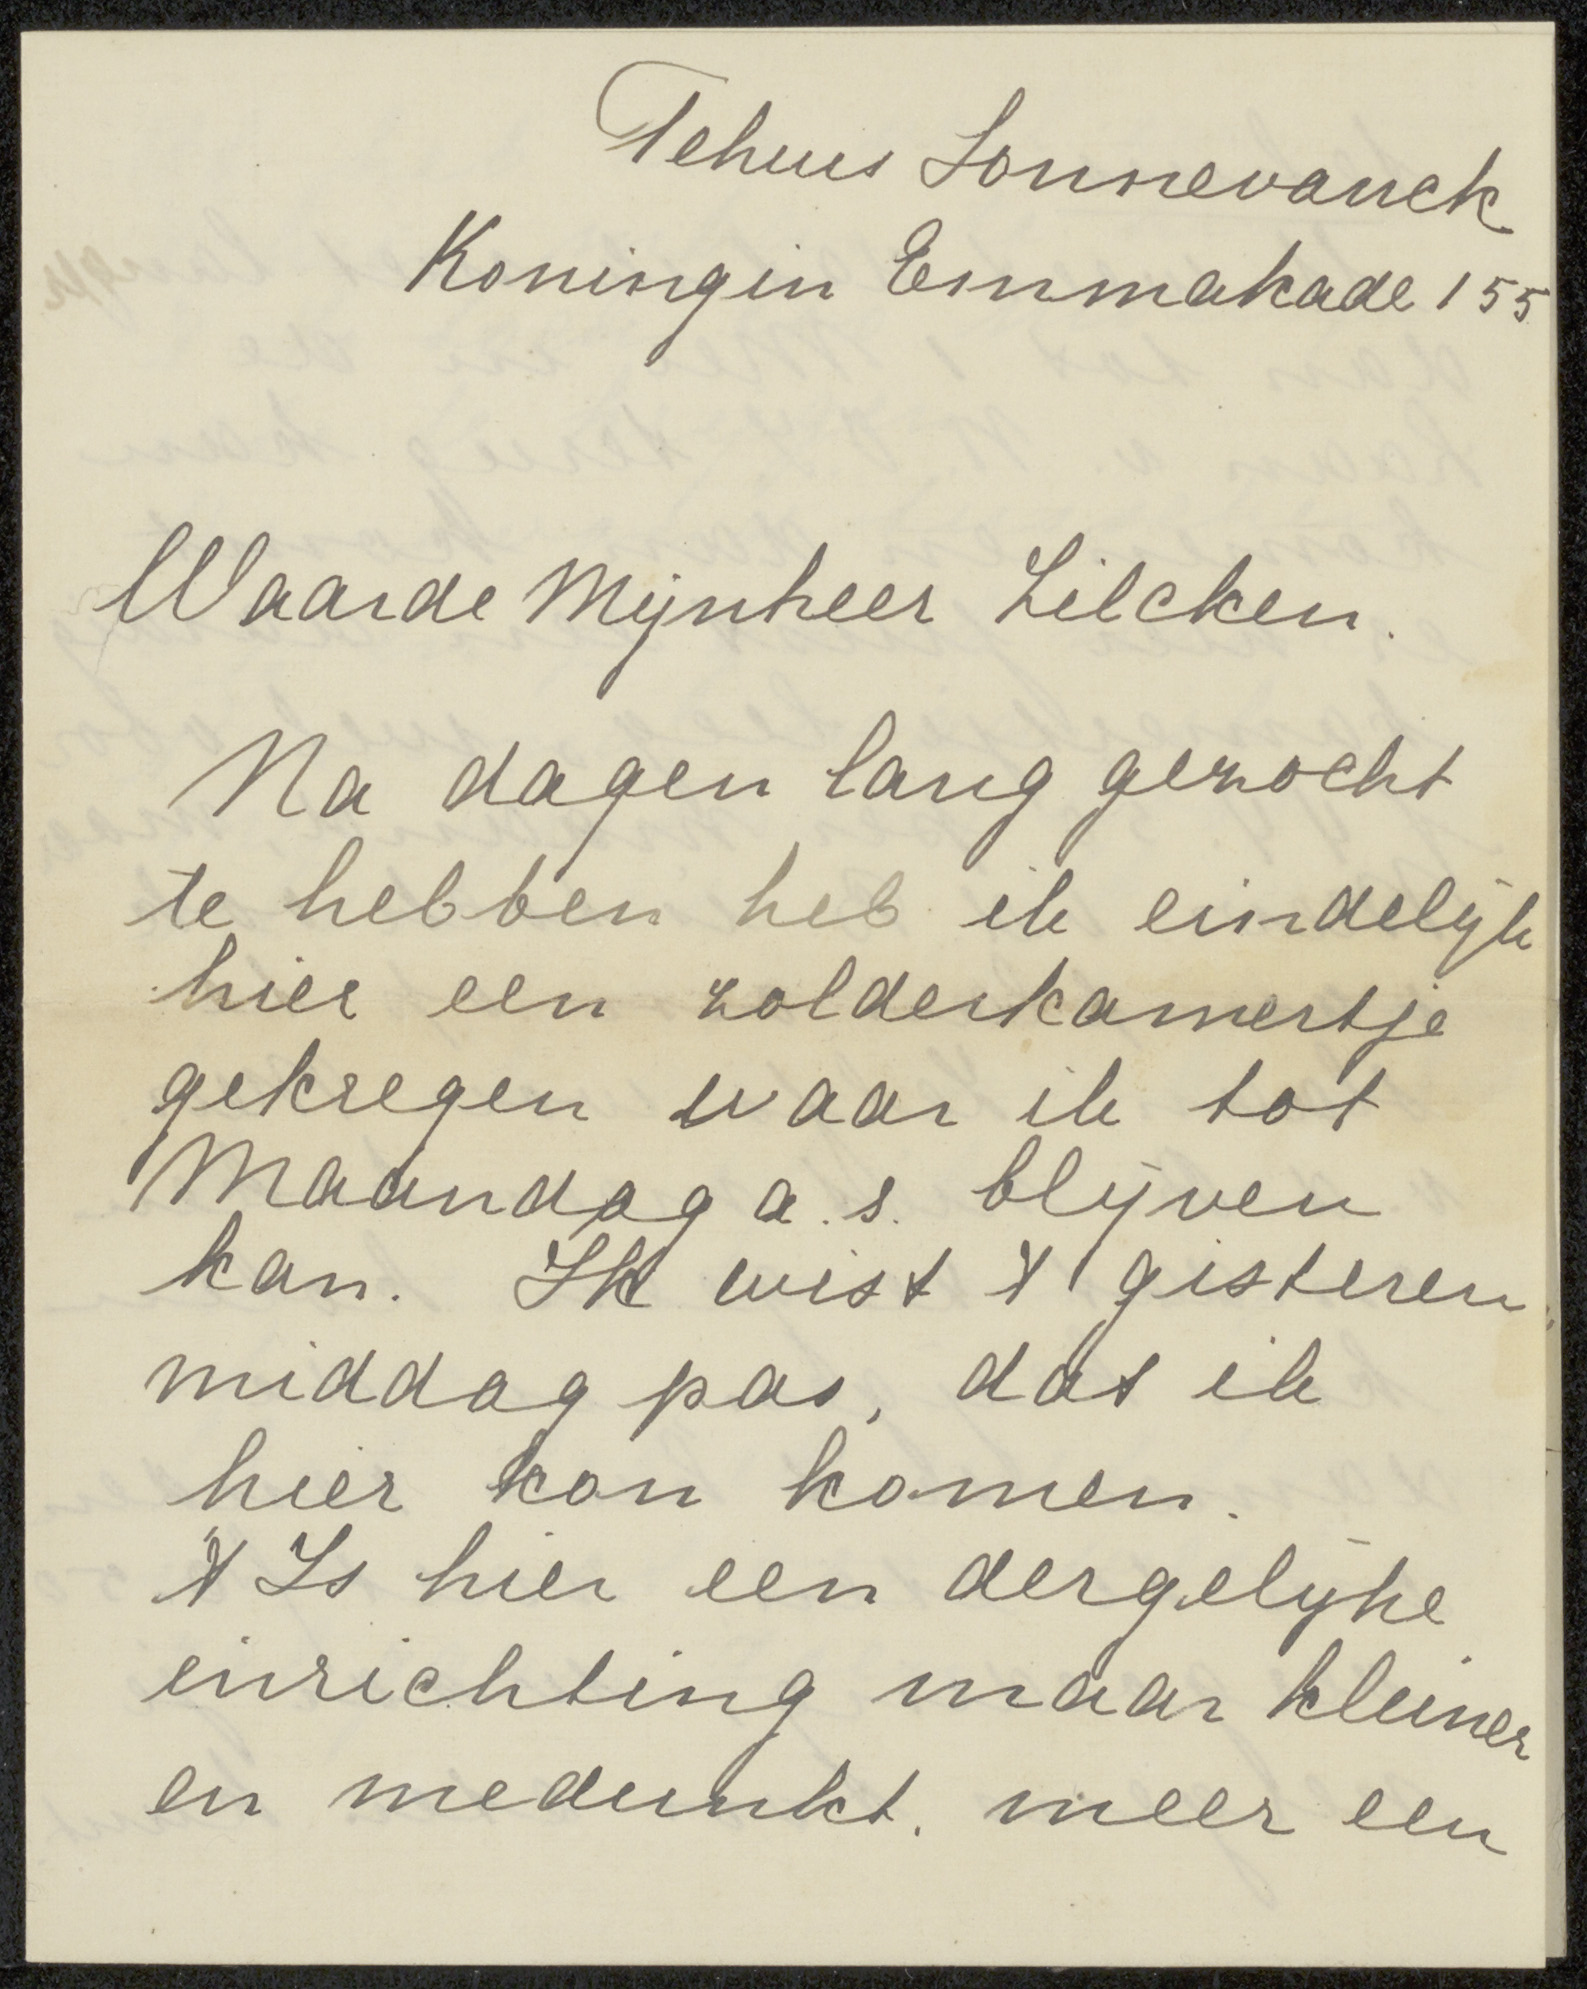 Tehuis Sonnevanck
Koningin Emmakade 155
Waarde Mijnheer Zilcken.
Na dagen lang gezocht
te hebben heb ik eindelijk
hier een zolderkamertje
gekregen waar ik tot
Maandag a.s. blijven
kan. Ik wist 't gisteren
middag pas, dat ik
hier kon komen.
't Is hier een dergelijke
inrichting maar kleiner
en medunkt. meer een